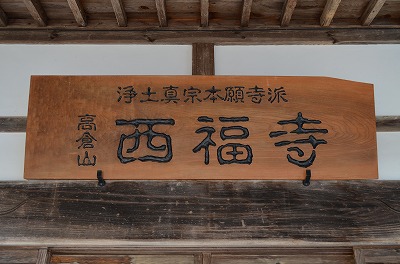 浄土真宗本願寺派
高倉山
西福寺